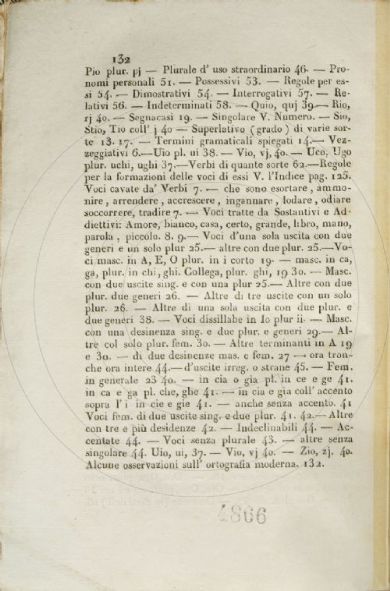 132
Pio plur. pj — Plurale d' uso straordinario 46. — Pro-
nomi personali 51. — Possessivi 53. — Regole per es-
si 54. — Dimostrativi 54. — Interrogativi 57. — Re-
lativi 56. — Indeterminati 58. — Quio, quj 39. — Rio,
rj 40. — Segnacasi 19. — Singolare V. Numero. — Sio,
Stio, Tio coll' j 40 — Superlativo (grado) di varie sor-
te 13. 17. — Termini gramaticali spiegati 14. — Vez-
zeggiativi 6. — Uio pl. ui 38. — Vio, vj, 40. — Uco, Ugo
plur. uchi, ughi 37. — Verbi di quante sorte 62. — Regole
per la formazioni delle voci di essi V. l'Indice pag. 125.
Voci cavate da' Verbi 7. — che sono esortare, ammo-
nire, arrendere, accrescere, ingannare, lodare, odiare
soccorrere, tradire 7. — Voci tratte da Sostantivi e Ad-
diettivi: Amore, bianco, casa, certo, grande, libro, mano,
parola, piccolo. 8. 9. — Voci d'una sola uscita con due
generi e un solo plur 25. — altre con due plur. 25. — Vo-
ci masc. in A, E, O plur. in i corto 19. — masc. in ca,
ga, plur. in chi, ghi. Collega, plur. ghi, 19 30. — Masc.
con due uscite sing. e con una plur 25. — Altre con due
plur. due generi 26. — Altre di tre uscite con un solo
plur. 26. — Altre di una sola uscita con due plur. e
due generi 38. — Voci dissillabe in Io plur ii. — Masc.
con una desinenza sing. e due plur. e generi 29. — Al-
tre col solo plur. fem. 30. — Altre terminanti in A 19
e 30. — di due desinenze mas. e fem. 27 — ora tron-
che ora intere 44. — d'uscite irreg. o strane 45. — Fem.
in generale 23 40. — in cia o gia pl. in ce e ge 41.
in ca e ga pl. che, ghe 41. — in cia e gia coll' accento
sopra l' i in cie e gie 41. — anche senza accento. 41
Voci fem. di due uscite sing. e due plur. 41. 42. — Altre
con tre e più desidenze 42. — Indeclinabili 44. — Ac-
centate 44. — Voci senza plurale 43. — altre senza
singolare 44. Uio, ui, 37. — Vio, vj 40. — Zio, zj. 40.
Alcune osservazioni sull' ortografia moderna. 132.
4866